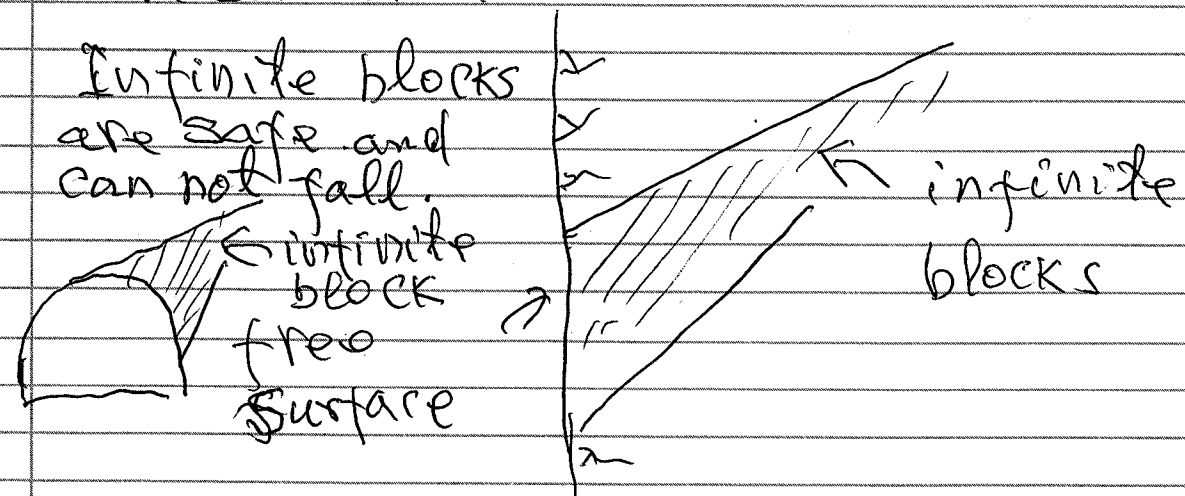 Infinite blocks
are safe and
can not fall.
infinite
block
free
surface
infinite
blocks